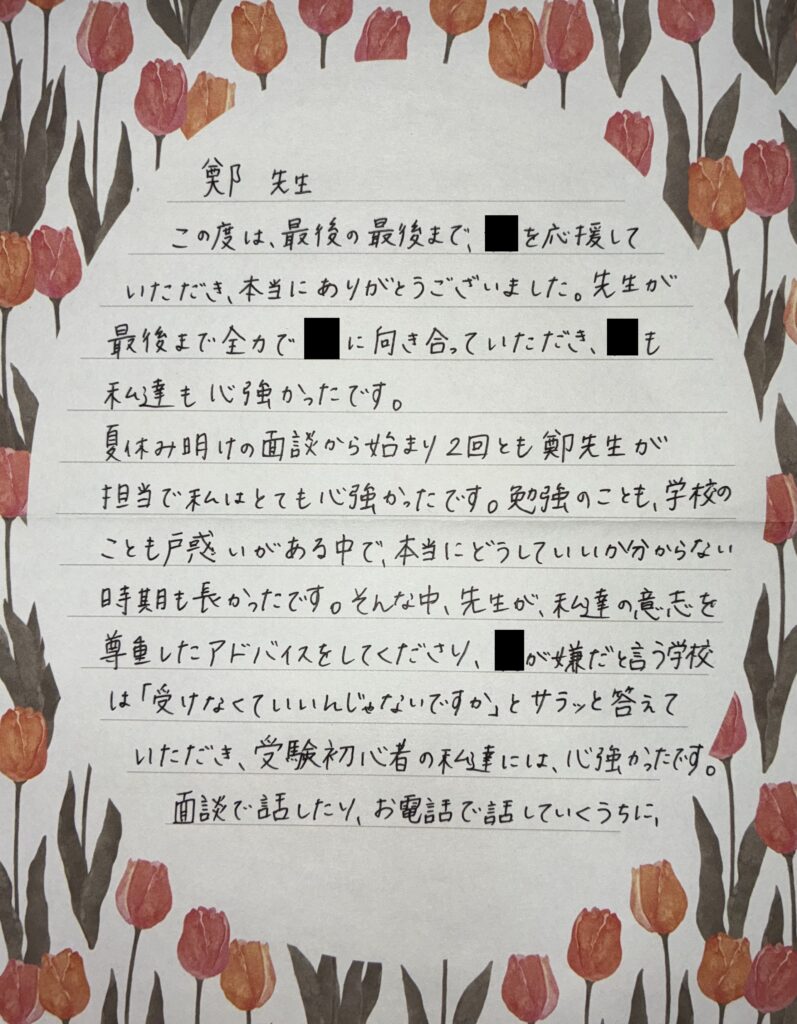 鄭 先生
この度は、最後の最後まで、を応援して
いただき、本当にありがとうございました。先生が
最後まで全力でに向き合っていただき、も
私達も心強かったです。
夏休み明けの面談から始まり2回とも鄭先生が
担当で私はとても心強かったです。勉強のことも、学校の
ことも戸惑いがある中で、本当にどうしていいか分からない
時期も長かったです。そんな中、先生が、私達の意志を
尊重したアドバイスをしてくださり、が嫌だと言う学校
は「受けなくていいんじゃないですか」とサラッと答えて
いただき、受験初心者の私達には、心強かったです。
面談で話したり、お電話で話していくうちに、